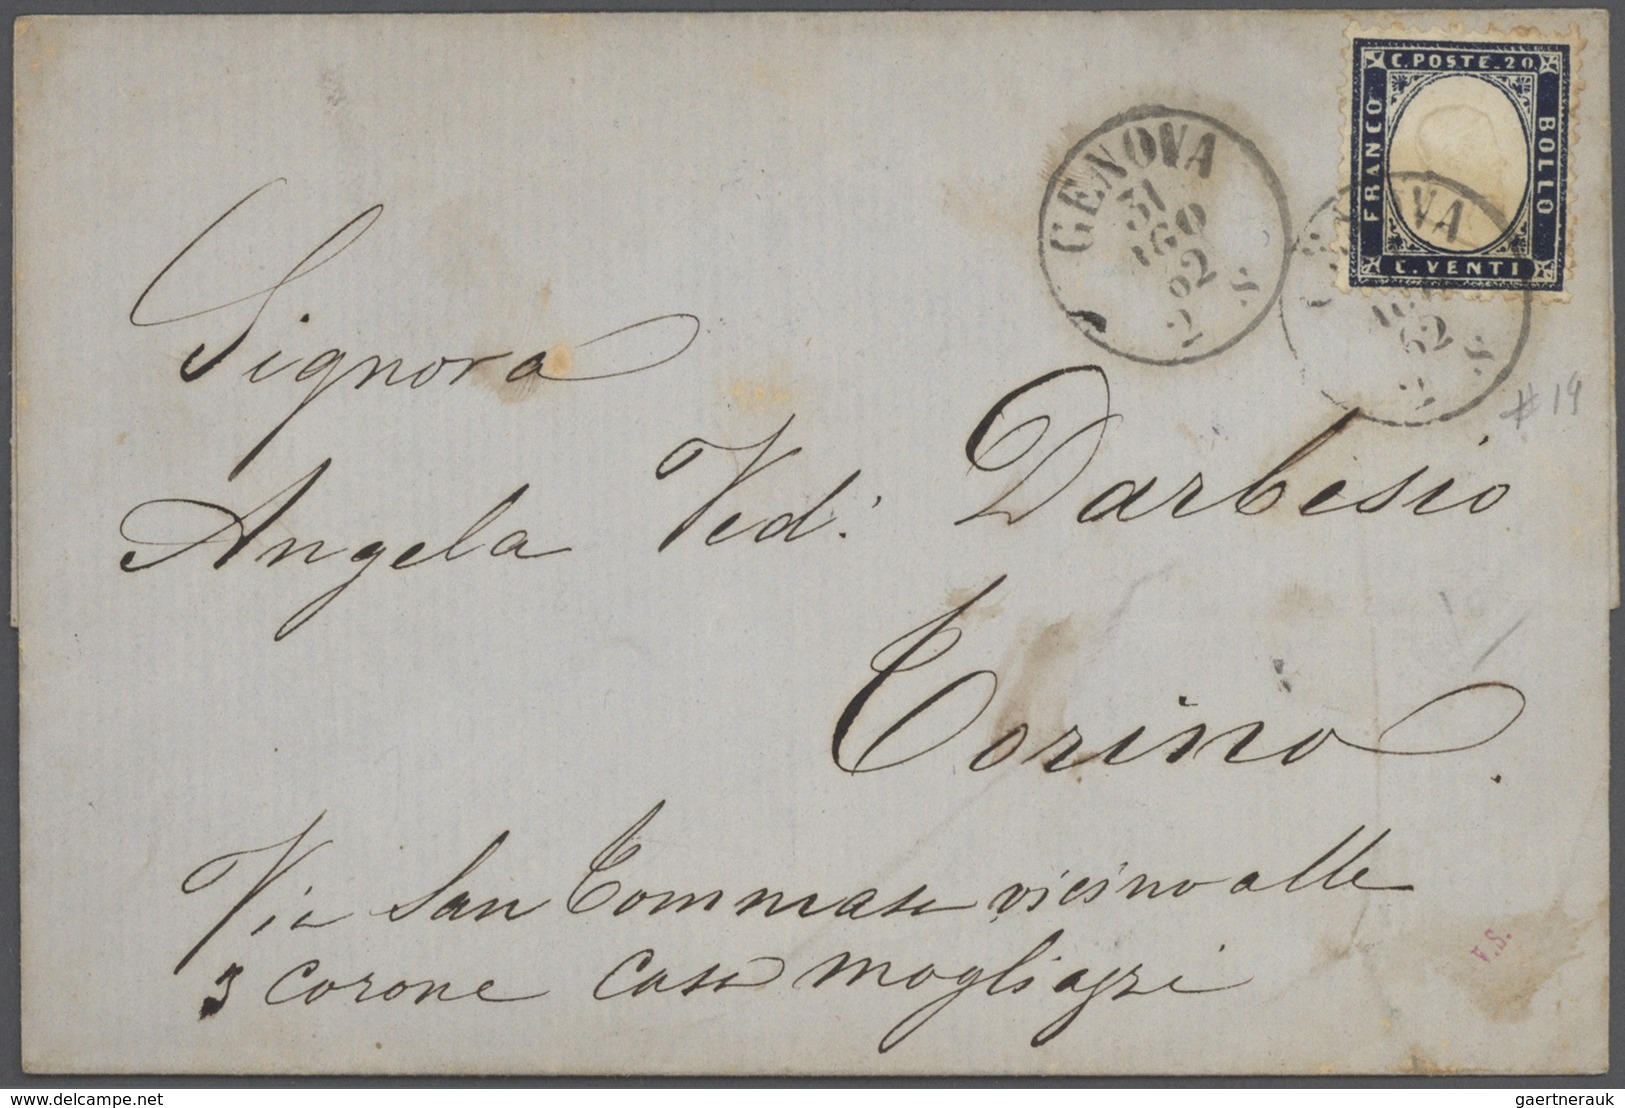 C. POSTE. 20
FRANCO
BOLLO
C. VENTI
GENOVA
31
AGO
62
2 S
62
2 S
# 19
Signora
Angela Ved: Darbesio
Torino.
Via San Tommaso vicino alle
3 corone casa
V.S.
delcampe.net
gaertnerauk